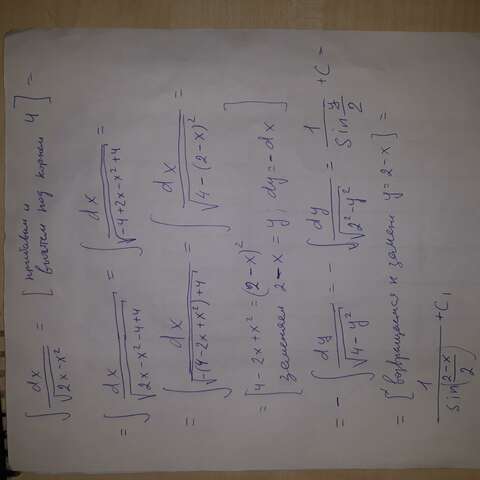 ∫ dx/√(2x-x²) = [прибавим и вычтем под корнем 4] =
= ∫ dx/√(2x-x²-4+4) = ∫ dx/√(-4+2x-x²+4) =
= ∫ dx/√(-(4-2x+x²)+4) = ∫ dx/√(4-(2-x)²) =
= [4-2x+x² = (2-x)²
заменяем 2-x = y; dy = -dx]
= - ∫ dy/√(4-y²) = - ∫ dy/√(2²-y²) = 1/(sin y/2) + C =
= [возвращаемся к замене y = 2-x] =
1/(sin((2-x)/2)) + C,